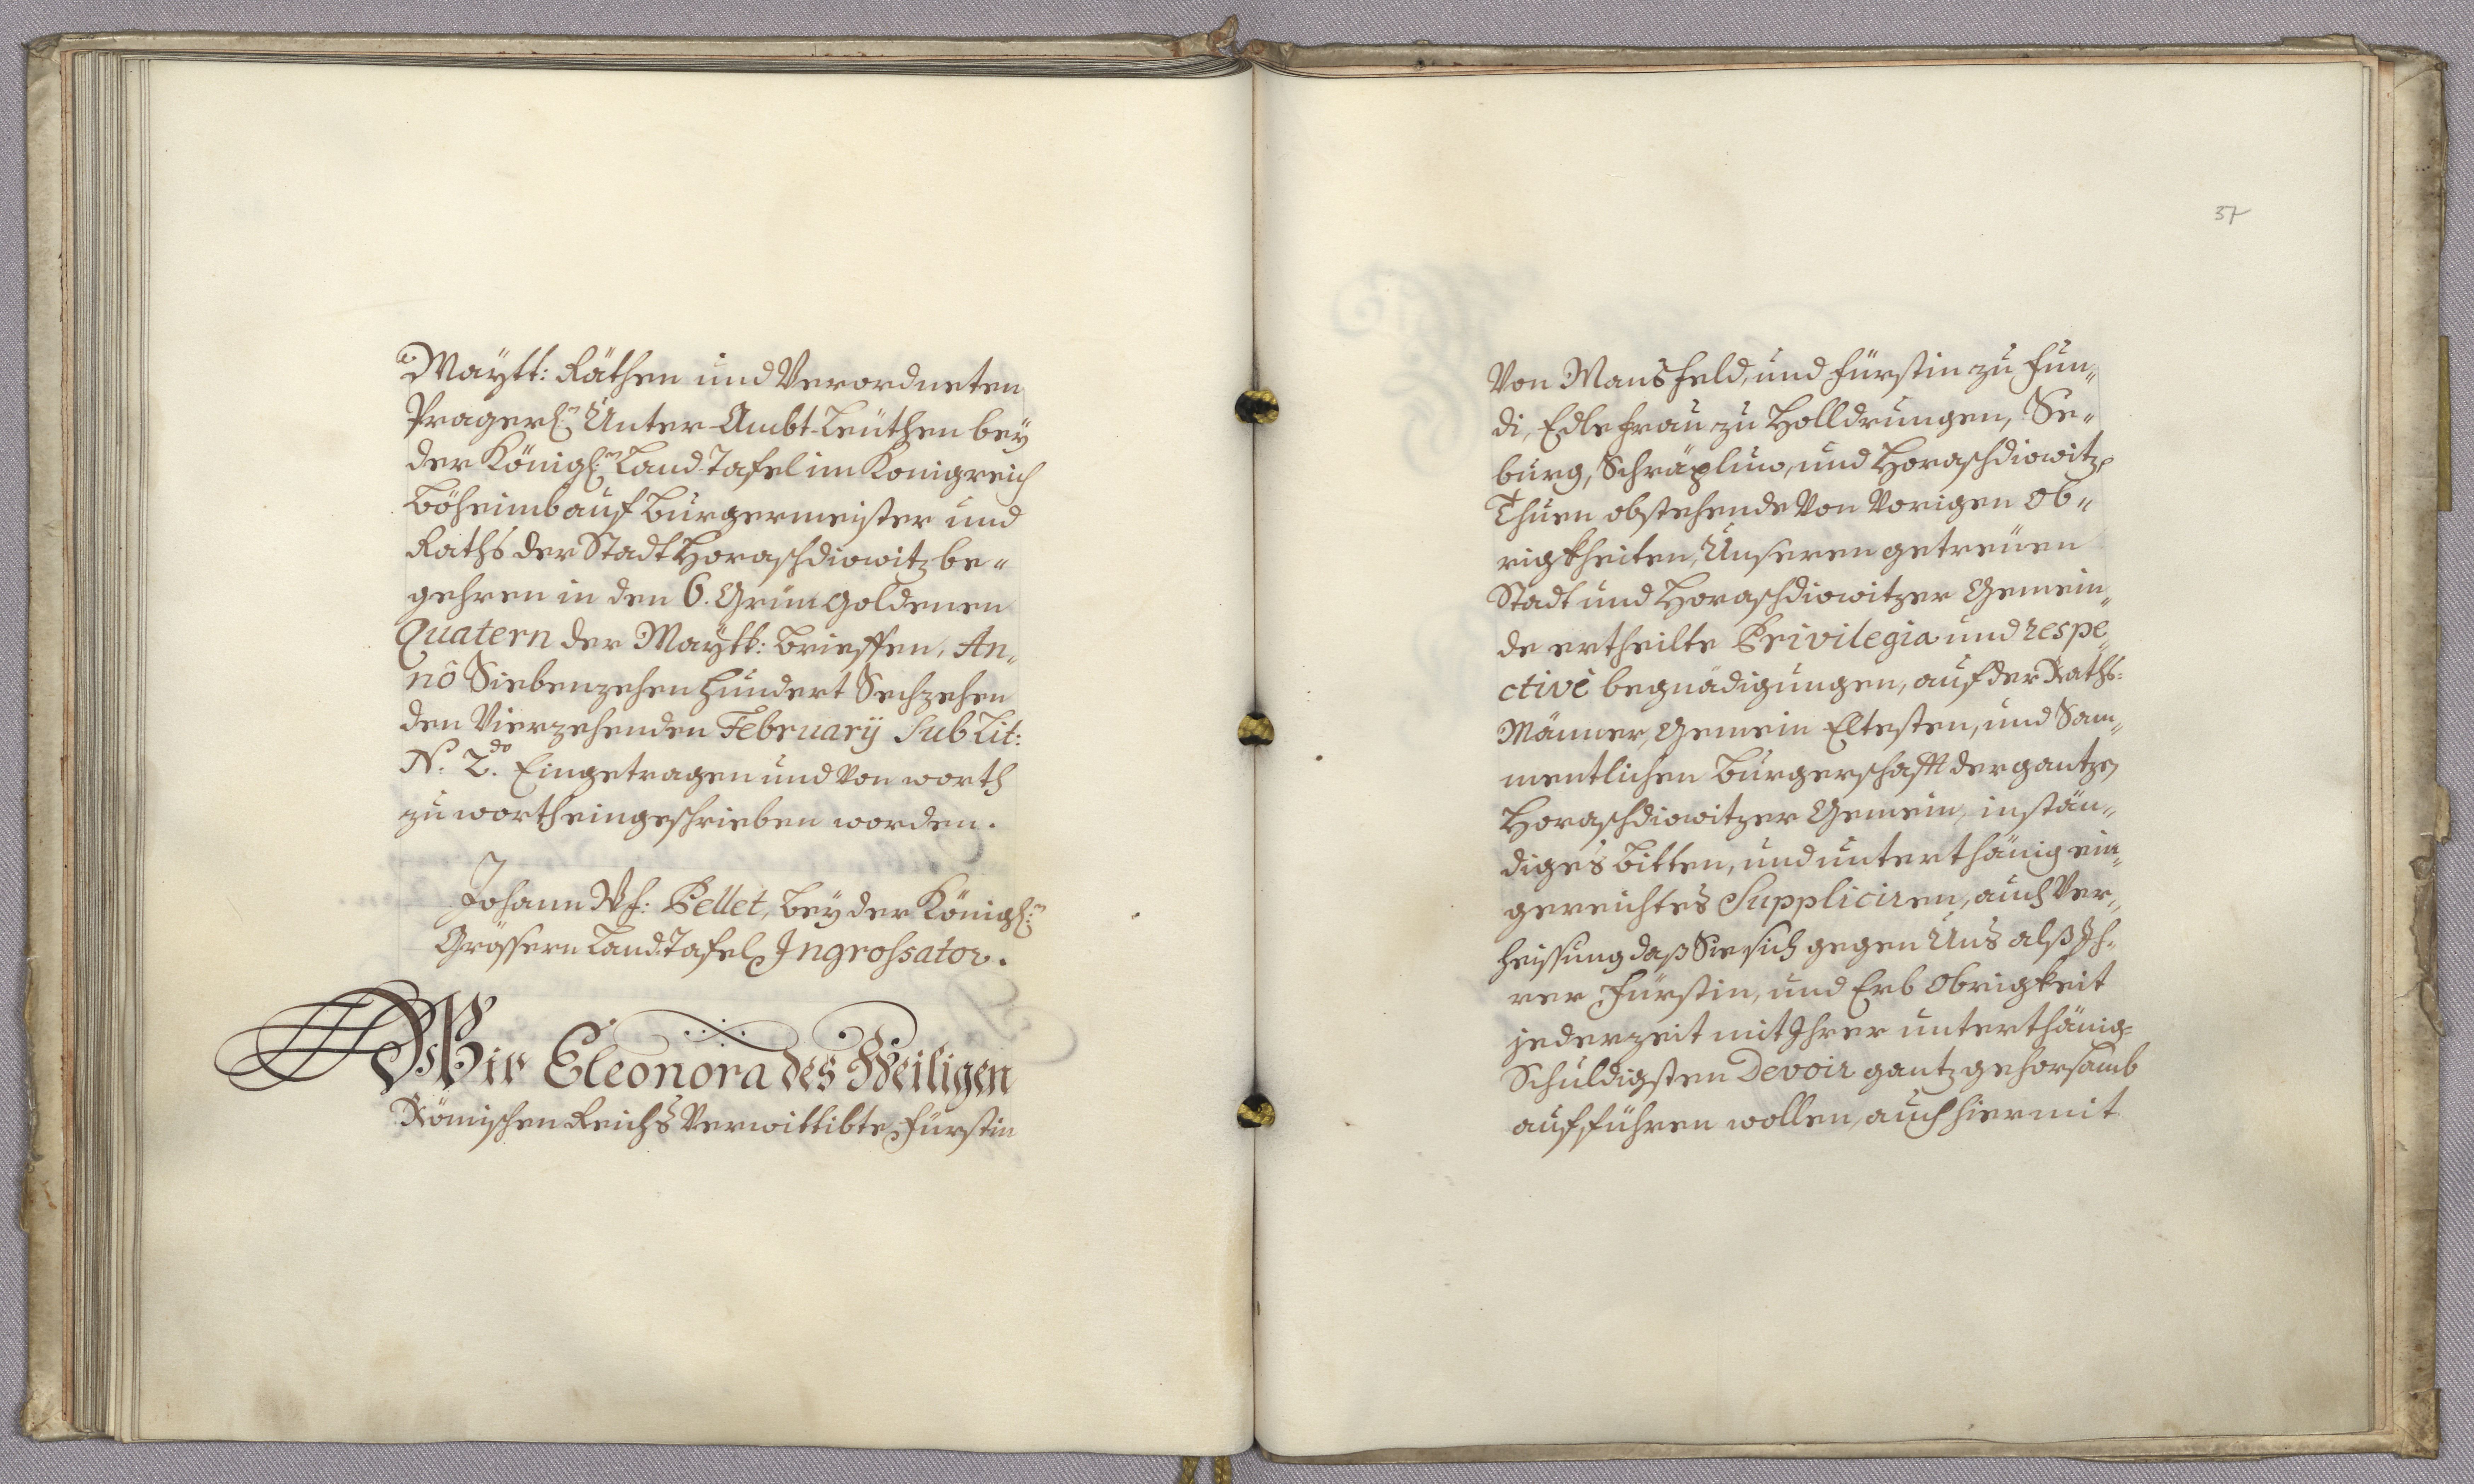 Maÿtt: Räthen und Verordneten
Pragerl:n Unter-Ambt-Leüthen beÿ
der Königl:n Land-Tafel im Konigreich
Böheimb auf Burgermeister und
Raths der Stadt Horaschdiowitz be„
gehren in den 6. Grün goldenen
Quatern der Maÿtt: Brieffen, An„
nô Siebenzehen hundert Sechzehen
den Vierzehenden Februarÿ Sub Lit:
N: 2.do Eingetragen und von worth
zu worth eingeschrieben worden.
Johann Pellet, beÿ der Königl:n
Grössern Land-Tafel Ingrossator.
Wir Eleonora des Heiligen
Römischen Reichs Verwittibte Fürstin
37
Von Mansfeld, und Fürstin zu Fun„
di, Edle Frau zu Holldrungen, Se„
burg, Schräplau, und Horaschdiowitz
Thuen obstehende von vorigen Ob„
rigkheiten, Unseren getreüen
Stadt und Horaschdiowitzer Gemein„
de ertheilte Privilegia und respe„
ctivè begnädigungen, auf der Raths-
Männer, Gemein Eltesten, und Sam„
mentlichen Burgerschafft der gantzen
Horaschdiowitzer Gemein, instän„
diges bitten, und unterthänig ein„
gereichtes Suppliciren, auch Ver„
heissung daß Sie sich gegen Uns alß Ih„
rer Fürstin, und Erb Obrigkeit
jederzeit mit Ihrer unterthänig-
Schuldigsten Devoir gantz gehorsamb
aufführen wollen, auch hiermit